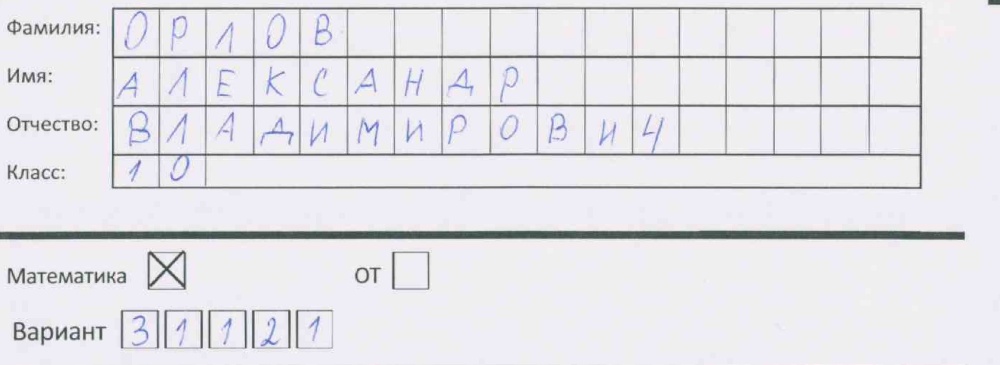 Фамилия: ОРЛОВ
Имя: АЛЕКСАНДР
Отчество: ВЛАДИМИРОВИЧ
Класс: 10
Математика ☒ ОТ ☐
Вариант 31121